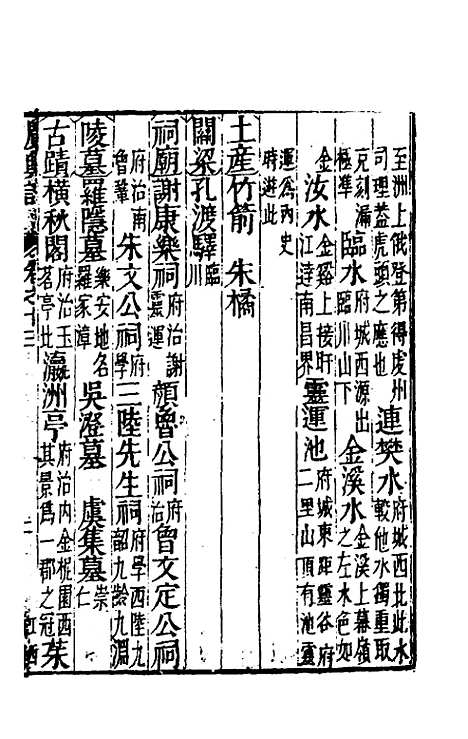 至洲上俄登第得虔州司理益虎頭之應也 連樊水 府城西北此水較他水獨重取
克刻漏極準 臨水 府城西源出臨川山下 金溪水 金溪上幕嶺之左水色如
金 汝水 金谿上接盱江達南昌界 靈運池 府城東距靈谷府二里山頂有池靈
運為內史府遊此
土產 竹箭 朱橘
關梁 孔渡驛 臨川
祠廟 謝康樂祠 府治謝靈運 顏魯公祠 府治 曾文定公祠
府治南曾鞏 朱文公祠 府學 三陸先生祠 府學西陸九韶九齡九淵
陵墓 羅隱墓 樂安地名羅家漳 吳澄墓 虞集墓 崇仁
古蹟 橫秋閣 府治玉茗亭北 瀛洲亭 府治内金柅園西其景為一郡之冠 茱
卷之十三